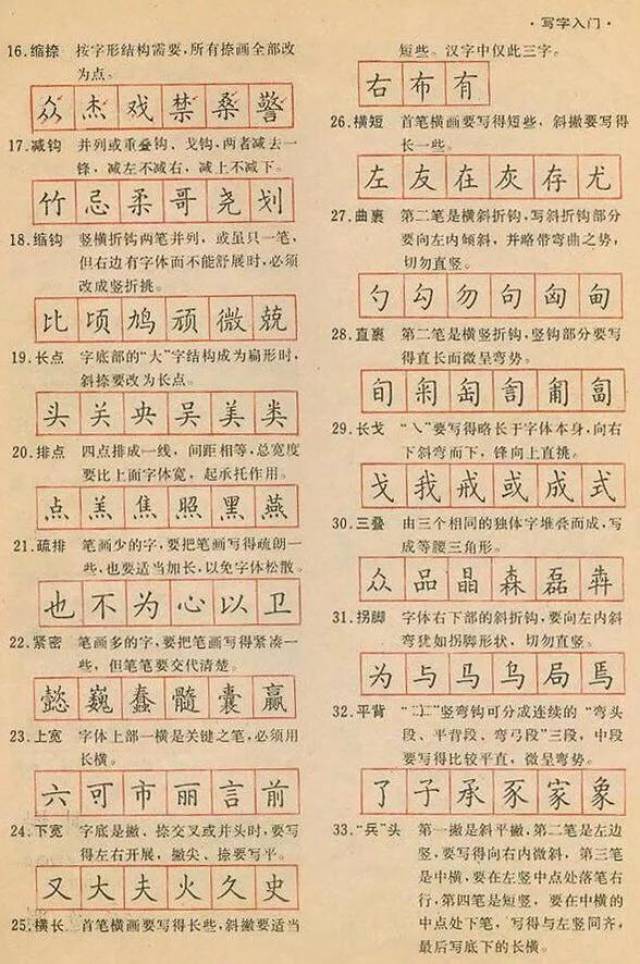 ·写字入门·
16.缩捺 按字形结构需要,所有捺画全部改
为点。
众杰戏禁桑警
17.减钩 并列或重叠钩、戈钩,两者减去一
锋,减左不减右,减上不减下。
竹忌柔哥尧划
18.缩钩 竖横折钩两笔并列,或虽只一笔,
但右边有字体而不能舒展时,必须
改成竖折挑。
比顷鸠顽微兢
19.长点 字底部的“大”字结构成为扁形时,
斜捺要改为长点。
头关央吴美类
20.排点 四点排成一线,间距相等,总宽度
要比上面字体宽,起承托作用。
点羔焦照黑燕
21.疏排 笔画少的字,要把笔画写得疏朗一
些,也要适当加长,以免字体松散。
也不为心以卫
22.紧密 笔画多的字,要把笔画写得紧凑一
些,但笔笔要交代清楚。
懿巍蠢髓囊赢
23.上宽 字体上部一横是关键之笔,必须用
长横。
六可市丽言前
24.下宽 字底是撇、捺交叉或并头时,要写
得左右开展,撇尖、捺要写平。
又大夫火久史
25.横长 首笔横画要写得长些,斜撇要适当
短些。汉字中仅此三字。
右布有
26.横短 首笔横画要写得短些,斜撇要写得
长一些。
左友在灰存尤
27.曲裹 第二笔是横斜折钩,写斜折钩部分
要向左内倾斜,并略带弯曲之势,
切勿直竖。
勺勾勿句匈甸
28.直裹 第二笔是横竖折钩,竖钩部分要写
得直长而微呈弯势。
旬匊匋訇匍匐
29.长戈 “㇂”要写得略长于字体本身,向右
下斜弯而下,锋向上直挑。
戈我戒或成式
30.三叠 由三个相同的独体字堆叠而成,写
成等腰三角形。
众品晶森磊犇
31.拐脚 字体右下部的斜折钩,要向左内斜
弯犹如拐脚形状,切勿直竖。
为与马乌局焉
32.平背 竖弯钩可分成连续的“弯头
段、平背段、弯弓段”三段,中段
要写得比较平直,微呈弯势。
了子承豕家象
33.“兵”头 第一撇是斜平撇,第二笔是左边
竖,要写得向右内微斜,第三笔
是中横,要在左竖中点处落笔右
行,第四笔是短竖,要在中横的
中点处下笔,写得与左竖同齐,
最后写底下的长横。